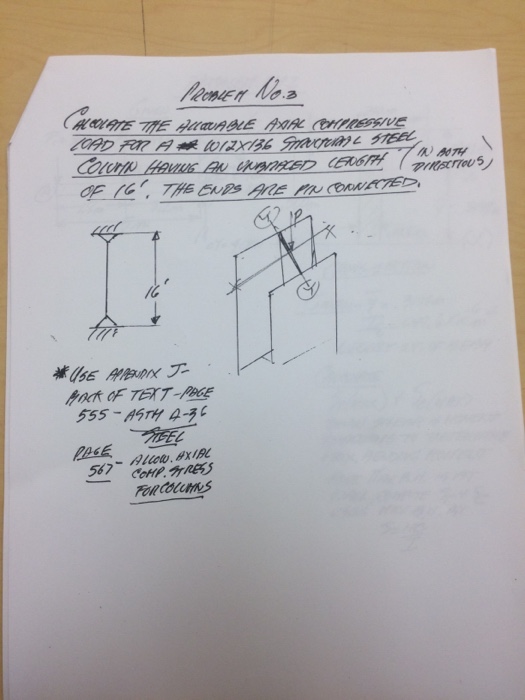 PROBLEM No. 3
CALCULATE THE ALLOWABLE AXIAL COMPRESSIVE
LOAD FOR A W12X136 STRUCTURAL STEEL
COLUMN HAVING AN UNBRACED LENGTH (IN BOTH DIRECTIONS)
OF 16'. THE ENDS ARE PIN CONNECTED.
Y P
X
16'
X
Y
* USE APPENDIX J-
BACK OF TEXT - PAGE
555 - ASTM A-36
STEEL
PAGE 567 - ALLOW. AXIAL
COMP. STRESS
FOR COLUMNS